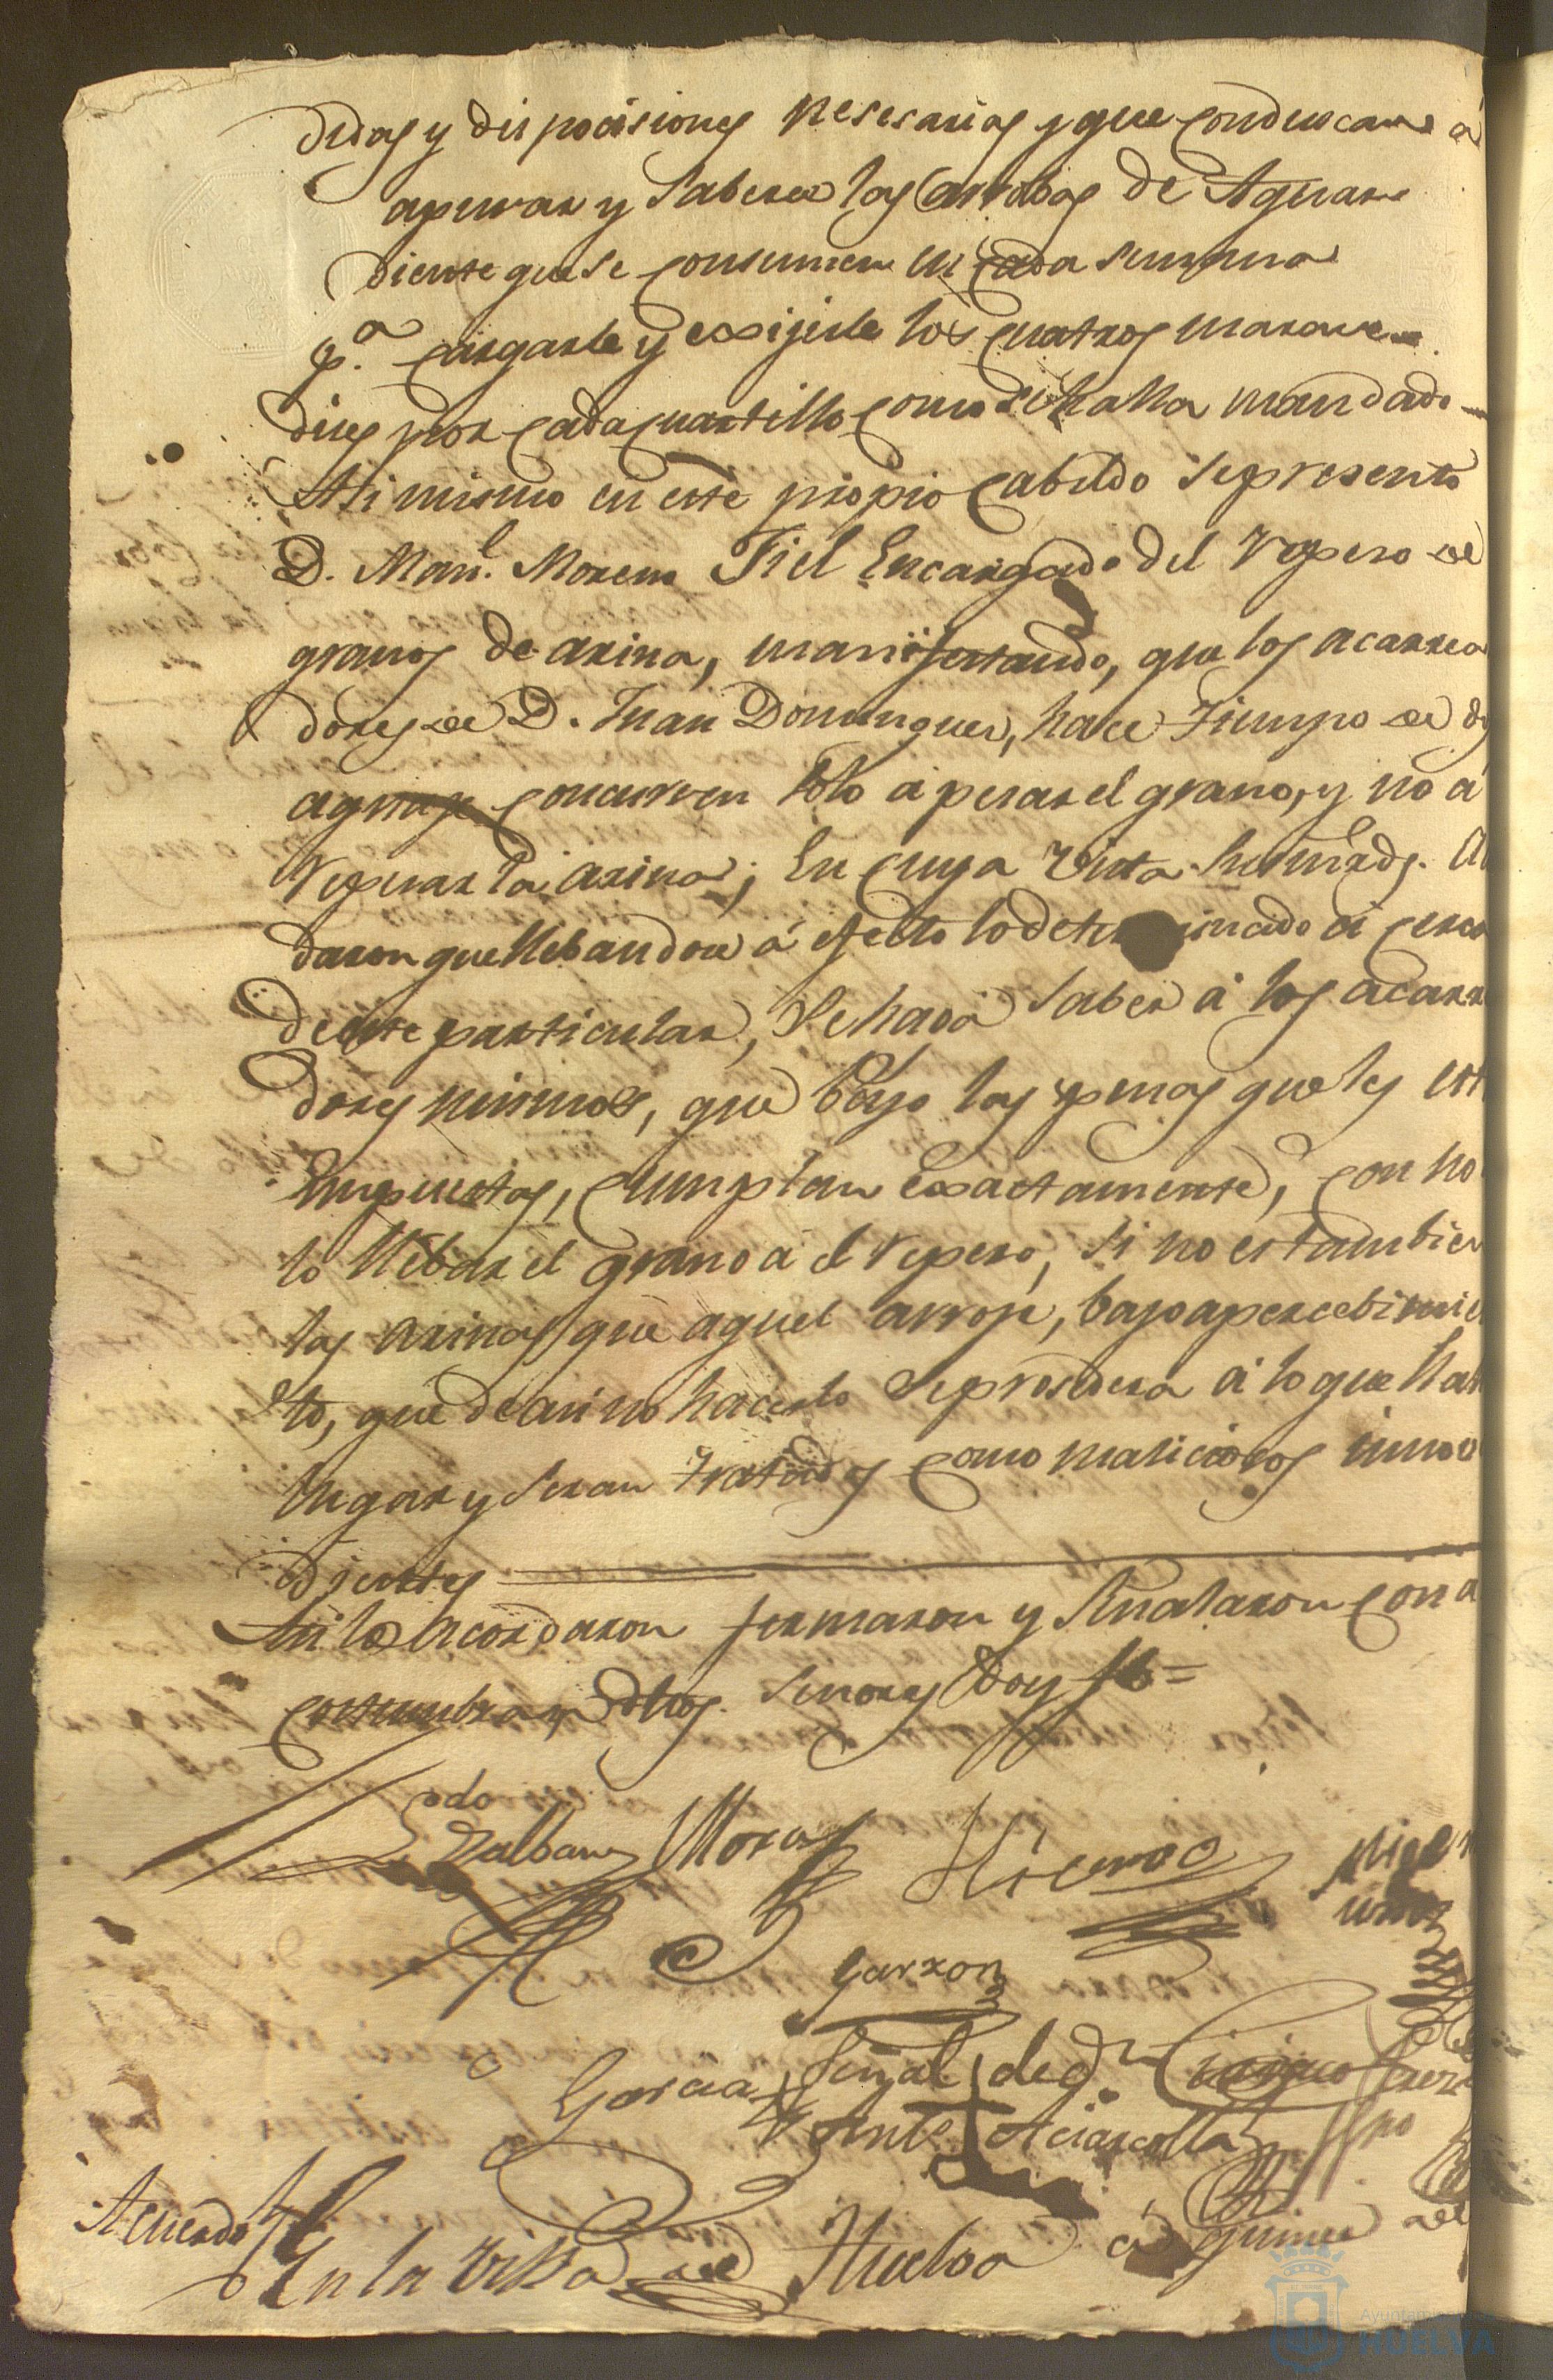 didas y disposisiones nesesarias y que conduscan a
apurar y Saberse las arrobas de Aguar
diente que se consumen en cada semana
p.ª cargarle y exsijirle los quatros marave
dises por cada quartillo como se halla mandado
Asi mismo en este propio Cabildo se presento
D. Man.l Moreno Fiel Encargado del Repeso de
granos de arina, manifestando, que los acarrea
dores de D. Juan Dominguez, hace Tiempo de dos
concurren solo á pesar el grano, y no á
Repesar la arina; En cuya Vista Sus mrds. A
daron que llebandose á efecto lo determinado a cerca
de este particular, Se hará Saber á los acarre
dores mismos, que bajo las penas que les est
Impuestas, cumplan exsactamente, con no
lo llebar el grano á el Repeso, si no es tambien
las arinas que aquel arroje, bajo apercebimien
to, que de asi no hacerlo Se prosedera á lo que hall
lugar y Seran Tratados como maliciosos inno
dientes
Asi lo acordaron firmaron y Señalaron con a
costumbran dhos. Señores Doy fe =
Moras
Garzon
Garcia
Señal de D.n Ciriaco
Ante
Acuerdo
En la Villa de Huelva á quince de
Ayuntam
HUELVA